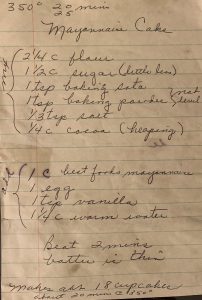 350° 20 mins
25
Mayonnaise Cake
mix
2 1/4 c flour
1 1/2 c sugar (little less)
1 tsp baking soda
1 tsp baking powder (not level)
1/3 tsp salt
1/4 c cocoa (heaping)
1 c best foods mayonnaise
1 egg
1 tsp vanilla
1 1/4 c warm water
Beat 2 mins
batter is thin
Makes abt 18 cupcakes
about 20 min @ 350°